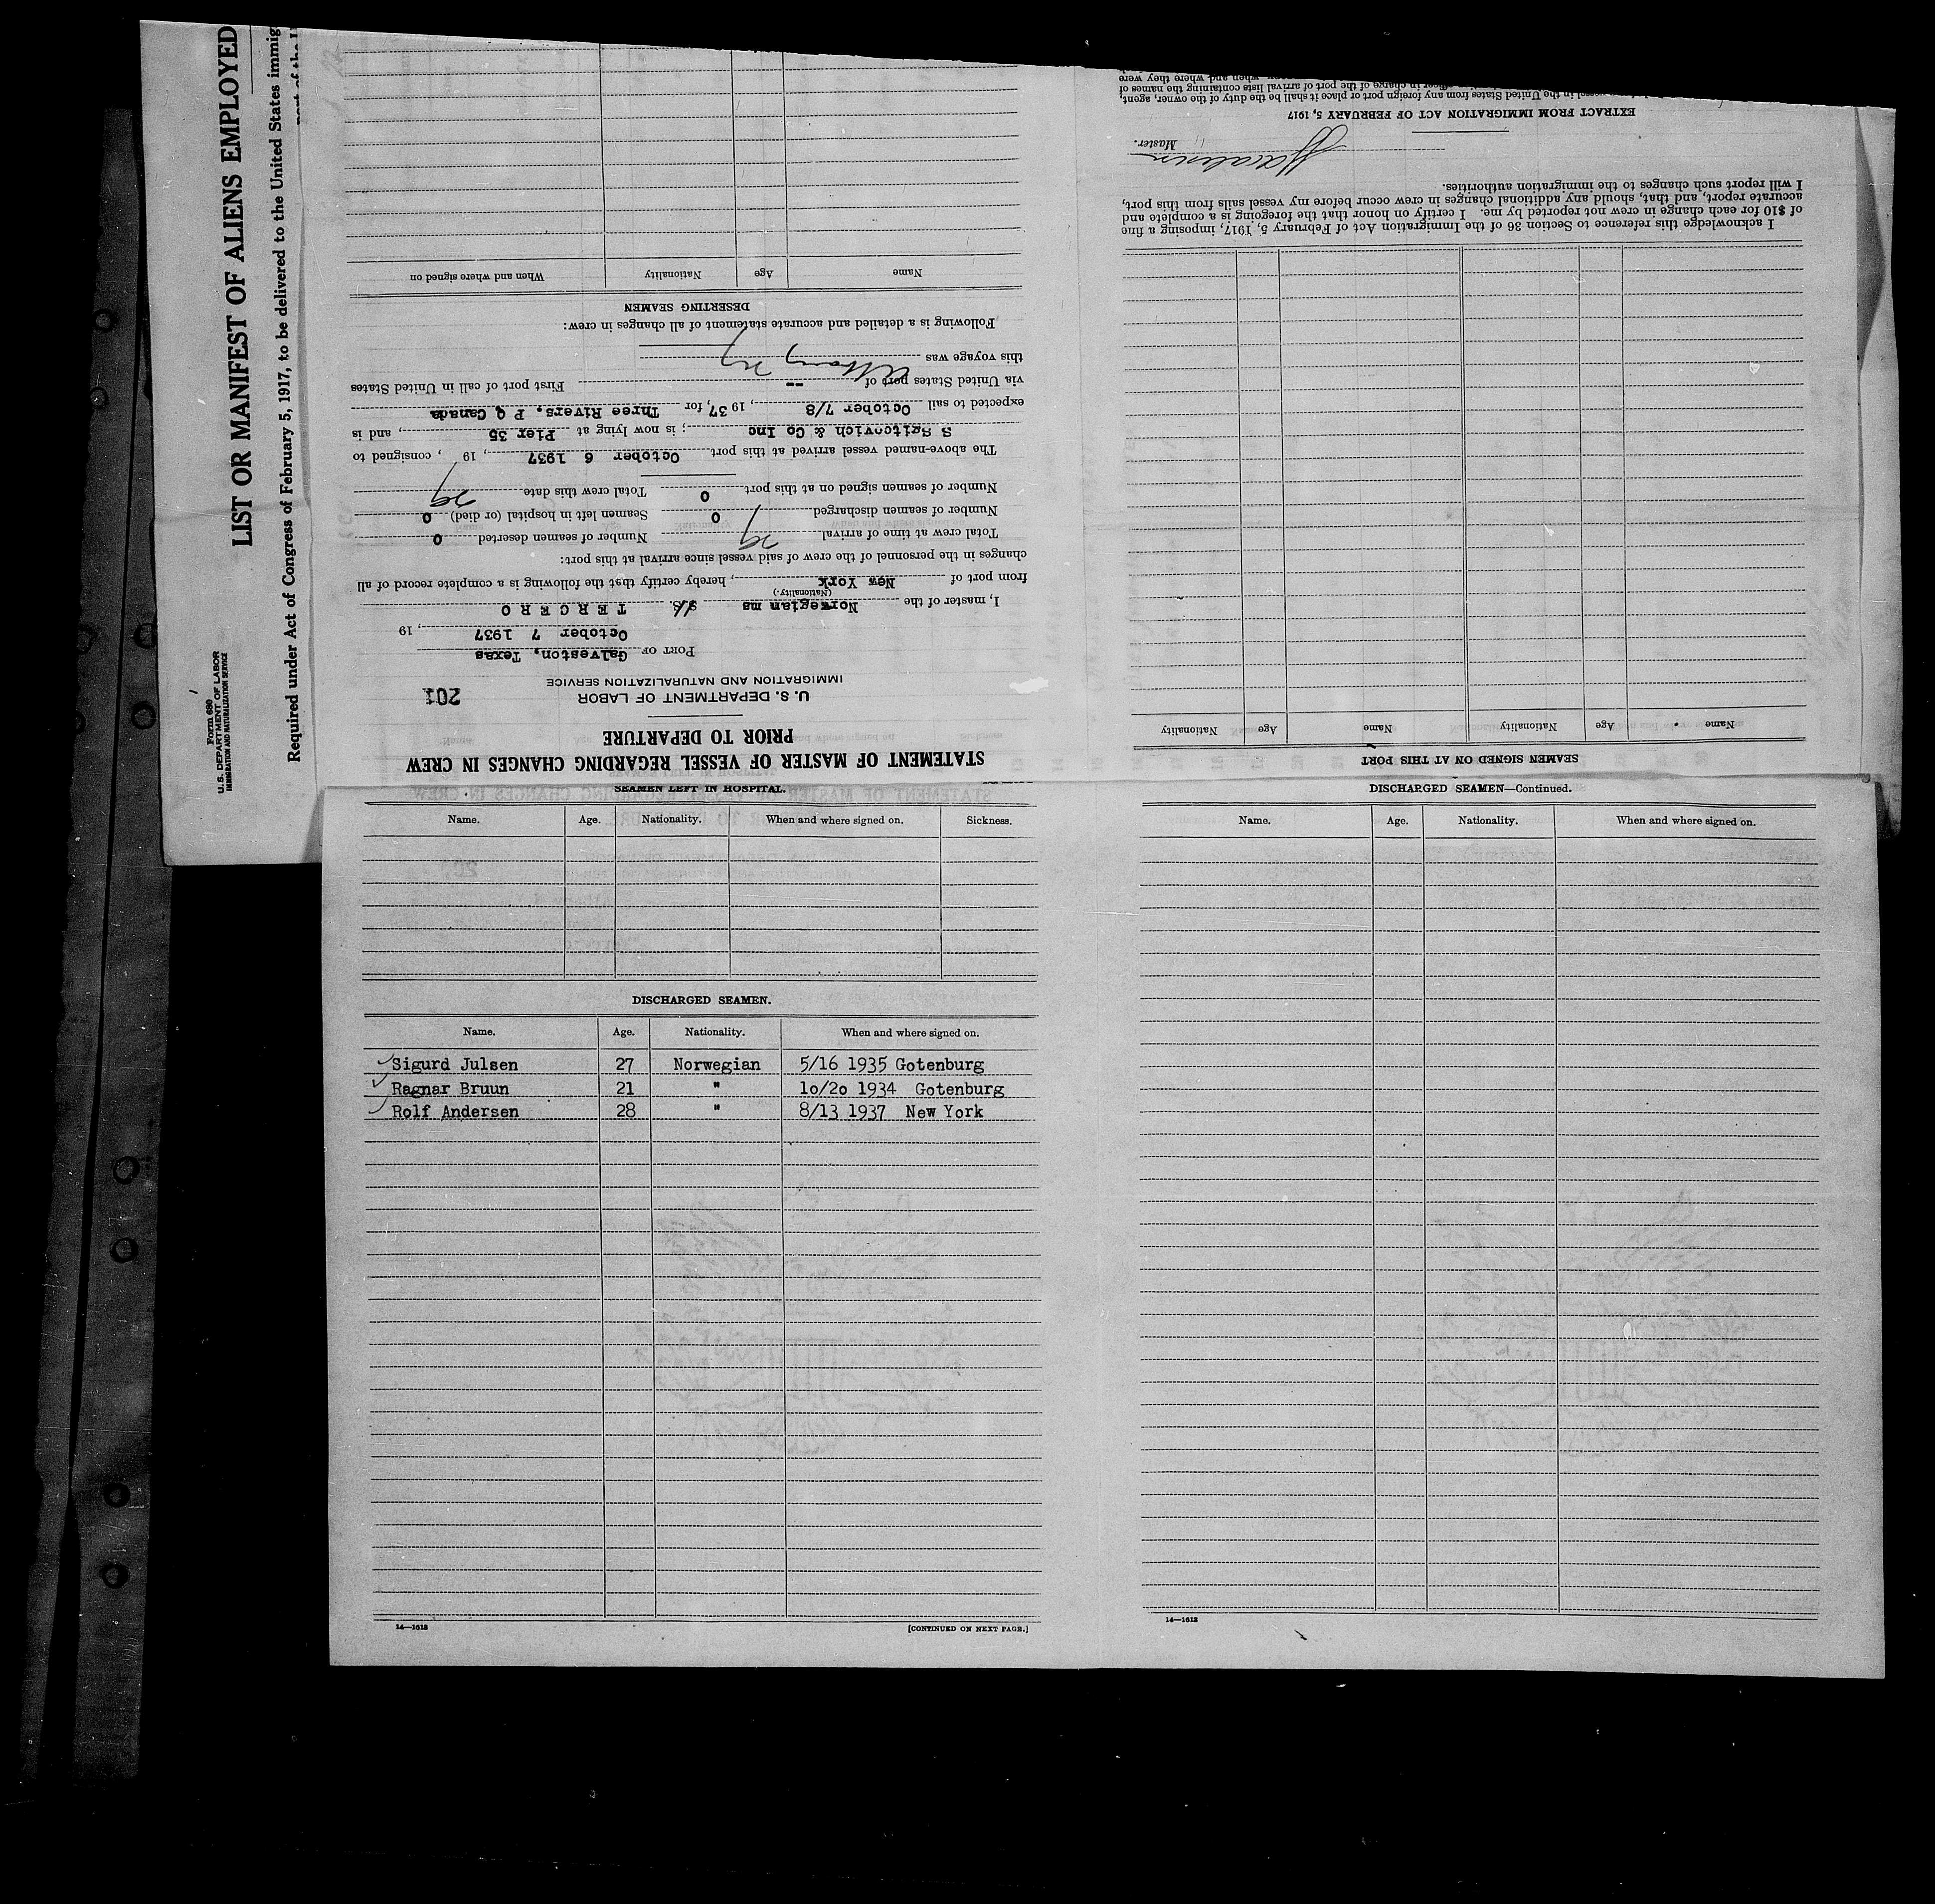 Form 680
U. S. DEPARTMENT OF LABOR
IMMIGRATION AND NATURALIZATION SERVICE
LIST OR MANIFEST OF ALIENS EMPLOYED
Required under Act of Congress of February 5, 1917, to be delivered to the United States immig
STATEMENT OF MASTER OF VESSEL REGARDING CHANGES IN CREW
PRIOR TO DEPARTURE
U. S. DEPARTMENT OF LABOR
IMMIGRATION AND NATURALIZATION SERVICE
201
PORT OF Galveston, Texas
October 7 1937, 19
I, master of the Norwegian ms S/S. TERCERO
(Nationality.)
from port of New York, hereby certify that the following is a complete record of all
changes in the personnel of the crew of said vessel since arrival at this port:
Total crew at time of arrival 29 Number of seamen deserted 0
Number of seamen discharged 0 Seamen left in hospital (or died) 0
Number of seamen signed on at this port 0 Total crew this date 29
The above-named vessel arrived at this port October 6 1937, 19 , consigned to
S Sgitcovich & Co Inc; is now lying at Pier 35, and is
expected to sail October 7/8, 1937, for Three Rivers, P Q Canada
via United States port of -- First port of call in United States
this voyage was Albany NY
Following is a detailed and accurate statement of all changes in crew:
DESERTING SEAMEN
Name Age Nationality When and where signed on
SEAMEN SIGNED ON AT THIS PORT
Name Age Nationality Name Age Nationality
I acknowledge this reference to Section 36 of the Immigration Act of February 5, 1917, imposing a fine
of $10 for each change in crew not reported by me. I certify on honor that the foregoing is a complete and
accurate report, and that, should any additional changes in crew occur before my vessel sails from this port,
I will report such changes to the immigration authorities.
Master.
EXTRACT FROM IMMIGRATION ACT OF FEBRUARY 5, 1917
in the United States from any foreign port or place it shall be the duty of the owner, agent,
officer in charge of the port of arrival lists containing the names of
when and where they were
SEAMEN LEFT IN HOSPITAL.
Name. Age. Nationality. When and where signed on. Sickness.
DISCHARGED SEAMEN.
Name. Age. Nationality. When and where signed on.
Sigurd Julsen 27 Norwegian 5/16 1935 Gotenburg
Ragnar Bruun 21 " 10/20 1934 Gotenburg
Rolf Andersen 28 " 8/13 1937 New York
14—1612
[CONTINUED ON NEXT PAGE.]
DISCHARGED SEAMEN—Continued.
Name. Age. Nationality. When and where signed on.
14—1612